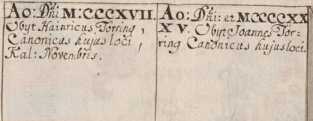 Ao: Dñi M:CCCXVII.
Obijt Hainricus Törring,
Canonicus hujus loci,
Kal: Novembris.
Ao: Dñi: et MCCCCXX
XV. Obijt Joannes Tör-
ring Canonicus hujus loci.